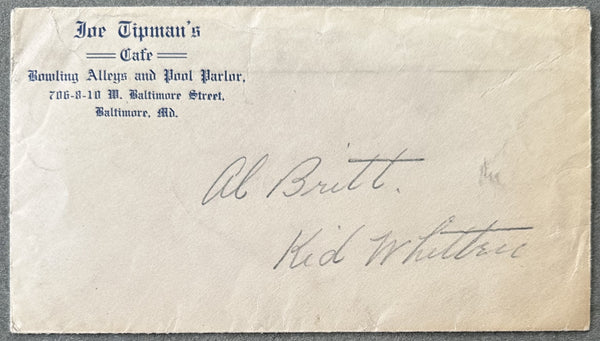 Joe Tipman's
Cafe
Bowling Alleys and Pool Parlor,
706-8-10 W. Baltimore Street,
Baltimore, Md.
Al Britt.
Kid